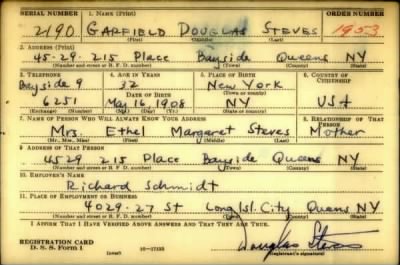 SERIAL NUMBER 1. NAME (Print) ORDER NUMBER
2190 GARFIELD DOUGLAS STEVES 1953
(First) (Middle) (Last)
2. ADDRESS (Print)
45-29 215 Place Bayside Queens NY
(Number and street or R. F. D. number) (Town) (County) (State)
3. TELEPHONE 4. AGE IN YEARS 5. PLACE OF BIRTH 6. COUNTRY OF CITIZENSHIP
Bayside 9 32 New York
DATE OF BIRTH
6251 May 16, 1908 NY USA
(Exchange) (Number) (Mo.) (Day) (Yr.) (State or country)
7. NAME OF PERSON WHO WILL ALWAYS KNOW YOUR ADDRESS 8. RELATIONSHIP OF THAT PERSON
Mrs. Ethel Margaret Steves Mother
(Mr., Mrs., Miss) (First) (Middle) (Last)
9. ADDRESS OF THAT PERSON
4529 215 Place Bayside Queens NY
(Number and street or R. F. D. number) (Town) (County) (State)
10. EMPLOYER'S NAME
Richard Schmidt
11. PLACE OF EMPLOYMENT OR BUSINESS
4029-27 St Long Isl. City Queens NY
(Number and street or R. F. D. number) (Town) (County) (State)
I AFFIRM THAT I HAVE VERIFIED ABOVE ANSWERS AND THAT THEY ARE TRUE.
REGISTRATION CARD
D. S. S. Form 1 (over) 16-17105 Douglas Steves
(Registrant's signature)